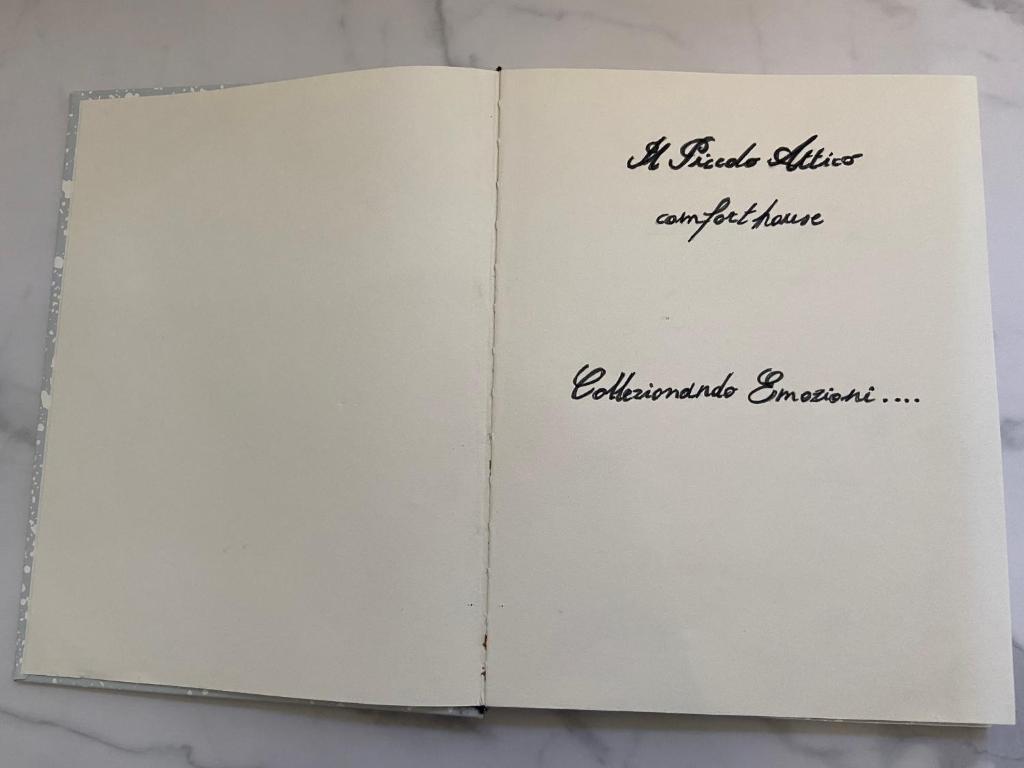 Il Piccolo Attico
comfort house
Collezionando Emozioni....